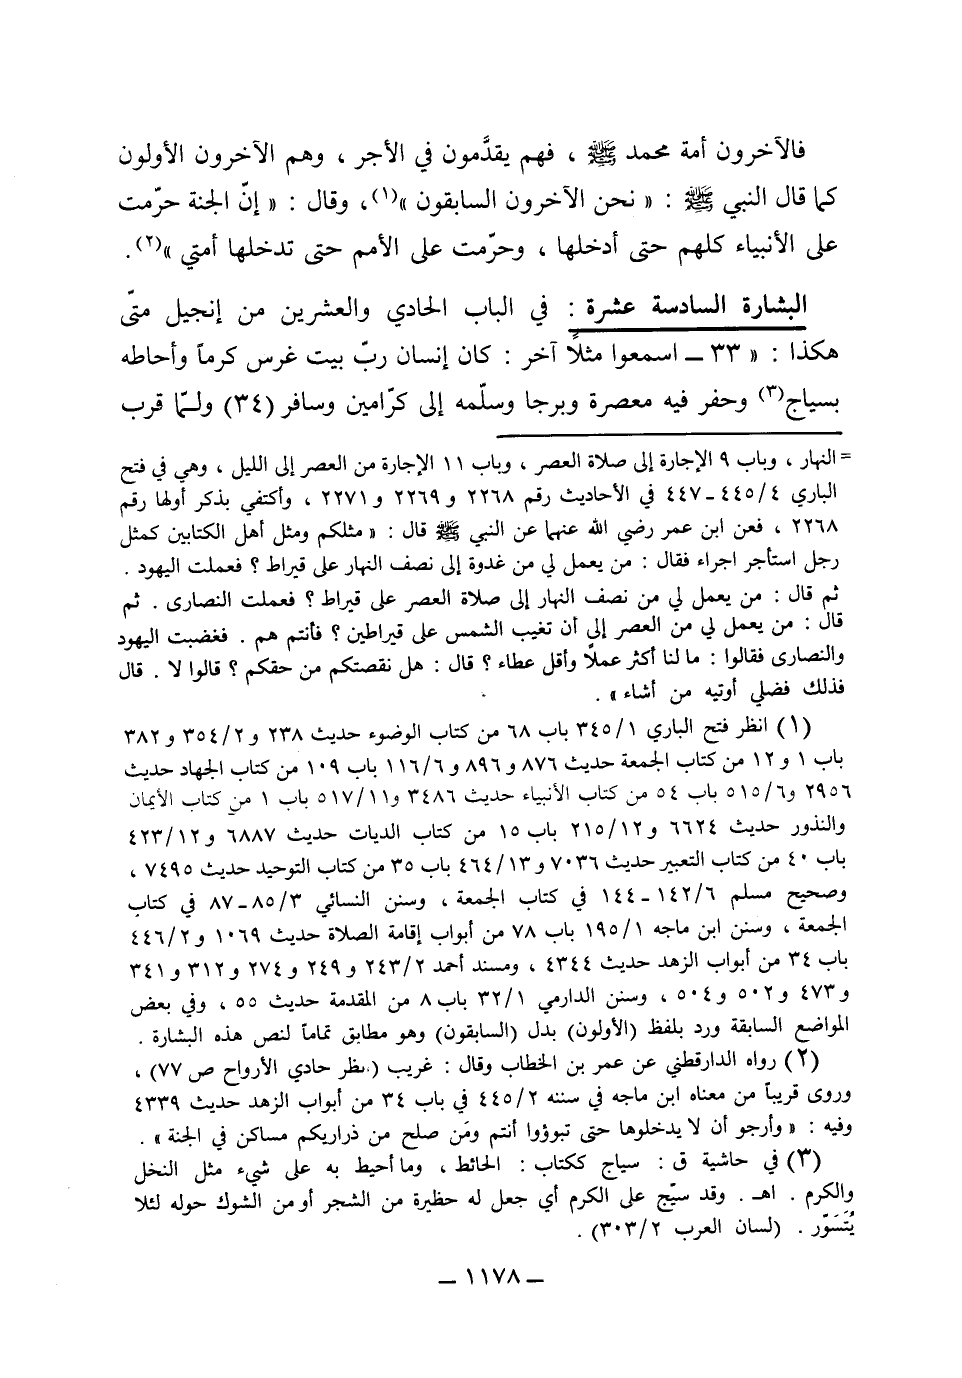 فالآخرون أمة محمد ﷺ ، فهم يقدَّمون في الأجر ، وهم الآخرون الأولون
كما قال النبي ﷺ : « نحن الآخرون السابقون »(١)، وقال : « إنّ الجنة حرّمت
على الأنبياء كلهم حتى أدخلها ، وحرّمت على الأمم حتى تدخلها أمتي »(٢).
البشارة السادسة عشرة : في الباب الحادي والعشرين من إنجيل متّى
هكذا : « ٣٣ ــ اسمعوا مثلاً آخر : كان إنسان ربّ بيت غرس كرماً وأحاطه
بسياج(٣) وحفر فيه معصرة وبرجا وسلّمه إلى كرّامين وسافر (٣٤) ولـمّا قرب
= النهار ، وباب ٩ الإجارة إلى صلاة العصر ، وباب ١١ الإجارة من العصر إلى الليل ، وهي في فتح
الباري ٤/٤٤٥ــ٤٤٧ في الأحاديث رقم ٢٢٦٨ و٢٢٦٩ و٢٢٧١ ، وأكتفي بذكر أولها رقم
٢٢٦٨ ، فعن ابن عمر رضي الله عنهما عن النبي ﷺ قال : « مثلكم ومثل أهل الكتابين كمثل
رجل استأجر اجراء فقال : من يعمل لي من غدوة إلى نصف النهار على قيراط ؟ فعملت اليهود .
ثم قال : من يعمل لي من نصف النهار إلى صلاة العصر على قيراط ؟ فعملت النصارى . ثم
قال : من يعمل لي من العصر إلى أن تغيب الشمس على قيراطين ؟ فأنتم هم . فغضبت اليهود
والنصارى فقالوا : ما لنا أكثر عملاً وأقل عطاء ؟ قال : هل نقصتكم من حقكم ؟ قالوا لا . قال
فذلك فضلي أوتيه من أشاء » .
(١) انظر فتح الباري ٣٤٥/١ باب ٦٨ من كتاب الوضوء حديث ٢٣٨ و٣٥٤/٢ و٣٨٢
باب ١ و١٢ من كتاب الجمعة حديث ٨٧٦ و٨٩٦ و١١٦/٦ باب ١٠٩ من كتاب الجهاد حديث
٢٩٥٦ و٥١٥/٦ باب ٥٤ من كتاب الأنبياء حديث ٣٤٨٦ و٥١٧/١١ باب ١ من كتاب الأيمان
والنذور حديث ٦٦٢٤ و٢١٥/١٢ باب ١٥ من كتاب الديات حديث ٦٨٨٧ و٤٢٣/١٢
باب ٤٠ من كتاب التعبير حديث ٧٠٣٦ و٤٦٤/١٣ باب ٣٥ من كتاب التوحيد حديث ٧٤٩٥ ،
وصحيح مسلم ١٤٢/٦ــ١٤٤ في كتاب الجمعة ، وسنن النسائي ٨٥/٣ــ٨٧ في كتاب
الجمعة ، وسنن ابن ماجه ١٩٥/١ باب ٧٨ من أبواب إقامة الصلاة حديث ١٠٦٩ و٤٤٦/٢
باب ٣٤ من أبواب الزهد حديث ٤٣٤٤ ، ومسند أحمد ٢٤٣/٢ و٢٤٩ و٢٧٤ و٣١٢ و٣٤١
و٤٧٣ و٥٠٢ و٥٠٤ ، وسنن الدارمي ٣٢/١ باب ٨ من المقدمة حديث ٥٥ ، وفي بعض
المواضع السابقة ورد بلفظ (الأولون) بدل (السابقون) وهو مطابق تماماً لنص هذه البشارة .
(٢) رواه الدارقطني عن عمر بن الخطاب وقال : غريب (انظر حادي الأرواح ص٧٧) ،
وروى قريباً من معناه ابن ماجه في سننه ٤٤٥/٢ في باب ٣٤ من أبواب الزهد حديث ٤٣٣٩
وفيه : « وأرجو أن لا يدخلوها حتى تبوؤوا أنتم ومَن صلح من ذراريكم مساكن في الجنة » .
(٣) في حاشية ق : سياج ككتاب : الحائط ، وما أحيط به على شيء مثل النخل
والكرم . اهـ . وقد سيّج على الكرم أي جعل له حظيرة من الشجر أو من الشوك حوله لئلا
يُتَسَوّر . (لسان العرب ٣٠٣/٢) .
ــ ١١٧٨ ــ